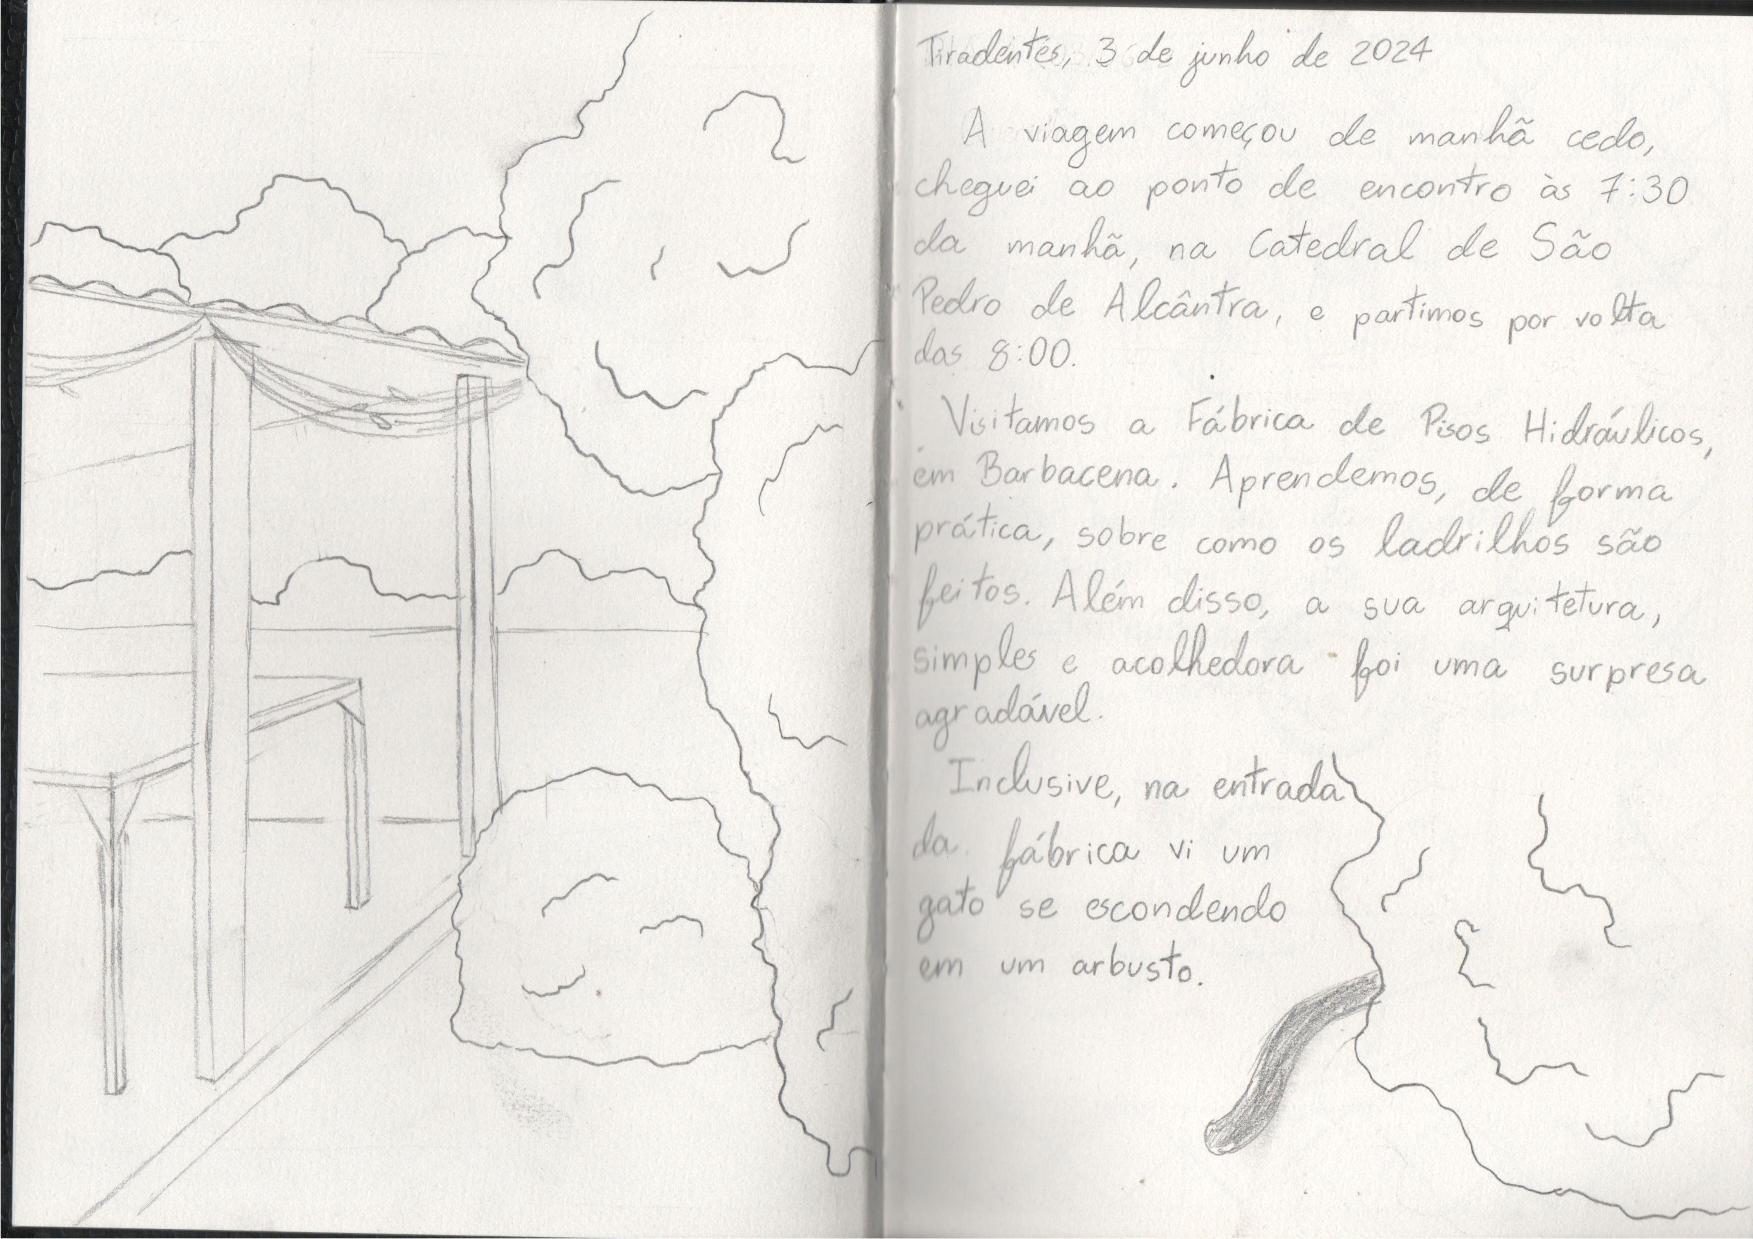 Tiradentes, 3 de junho de 2024
A viagem começou de manhã cedo,
cheguei ao ponto de encontro às 7:30
da manhã, na Catedral de São
Pedro de Alcântra, e partimos por volta
das 8:00.
Visitamos a Fábrica de Pisos Hidráulicos,
em Barbacena. Aprendemos, de forma
prática, sobre como os ladrilhos são
feitos. Além disso, a sua arquitetura,
simples e acolhedora foi uma surpresa
agradável.
Inclusive, na entrada
da fábrica vi um
gato se escondendo
em um arbusto.